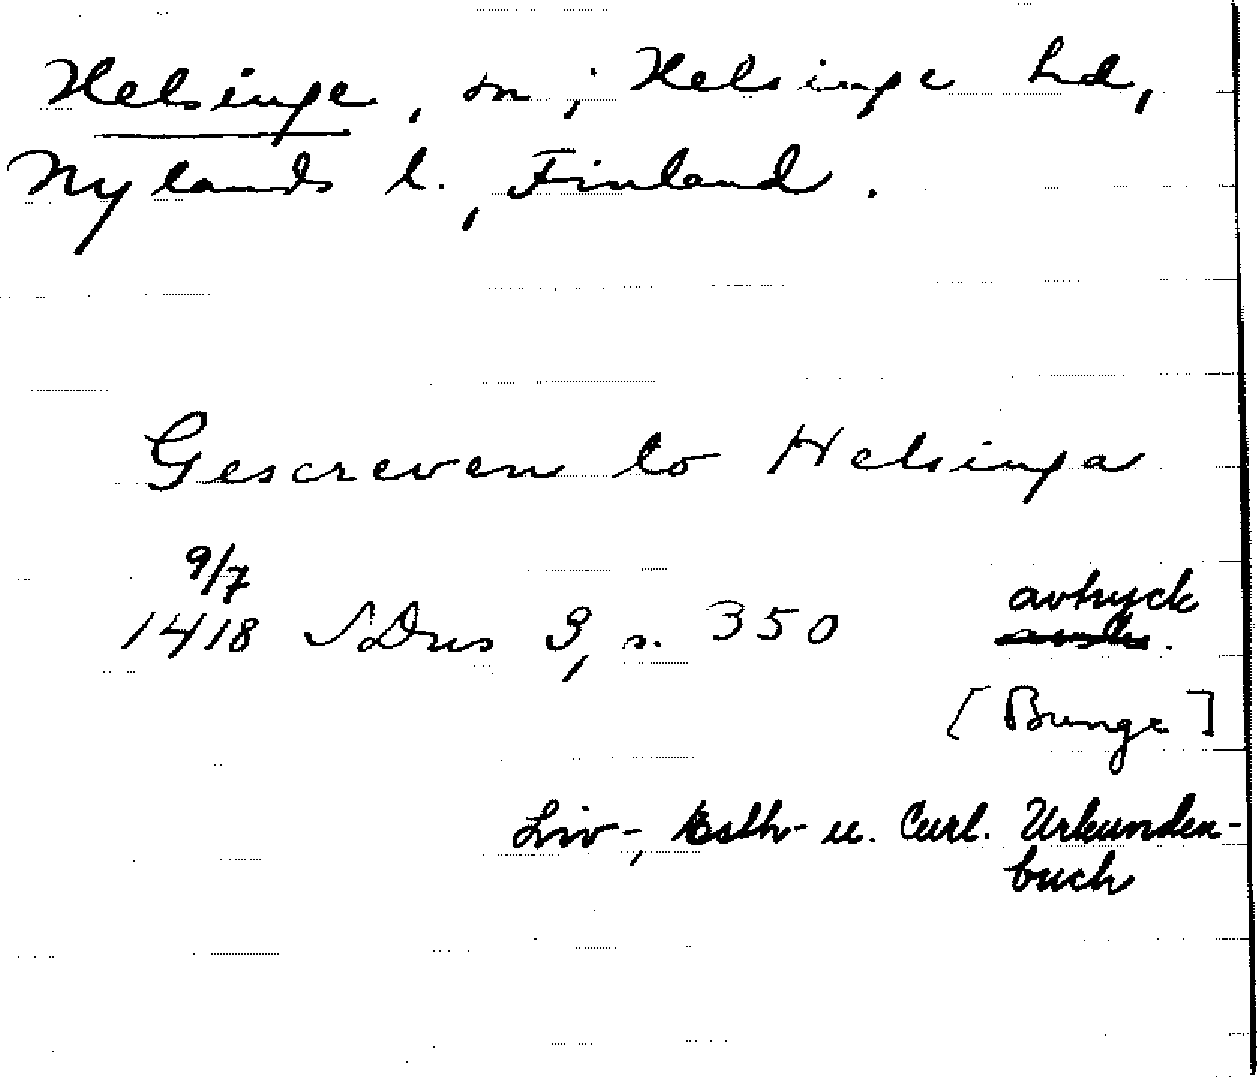 Helsinge, sn; Helsinge hd,
Nylands l., Finland.
Gescreven to Helsinga
9/7
1418 SDns 3, s. 350 avtryck
[Bunge]
Liv-, Esth- u. Curl. Urkunden-
buch